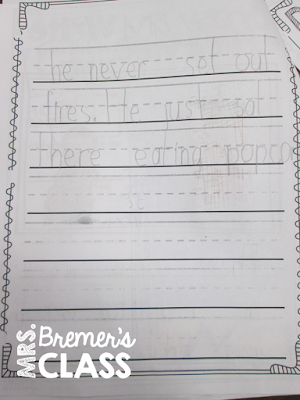 he never set out
fires. He just sat
there eating popco
MRS.
Bremer's
CLASS